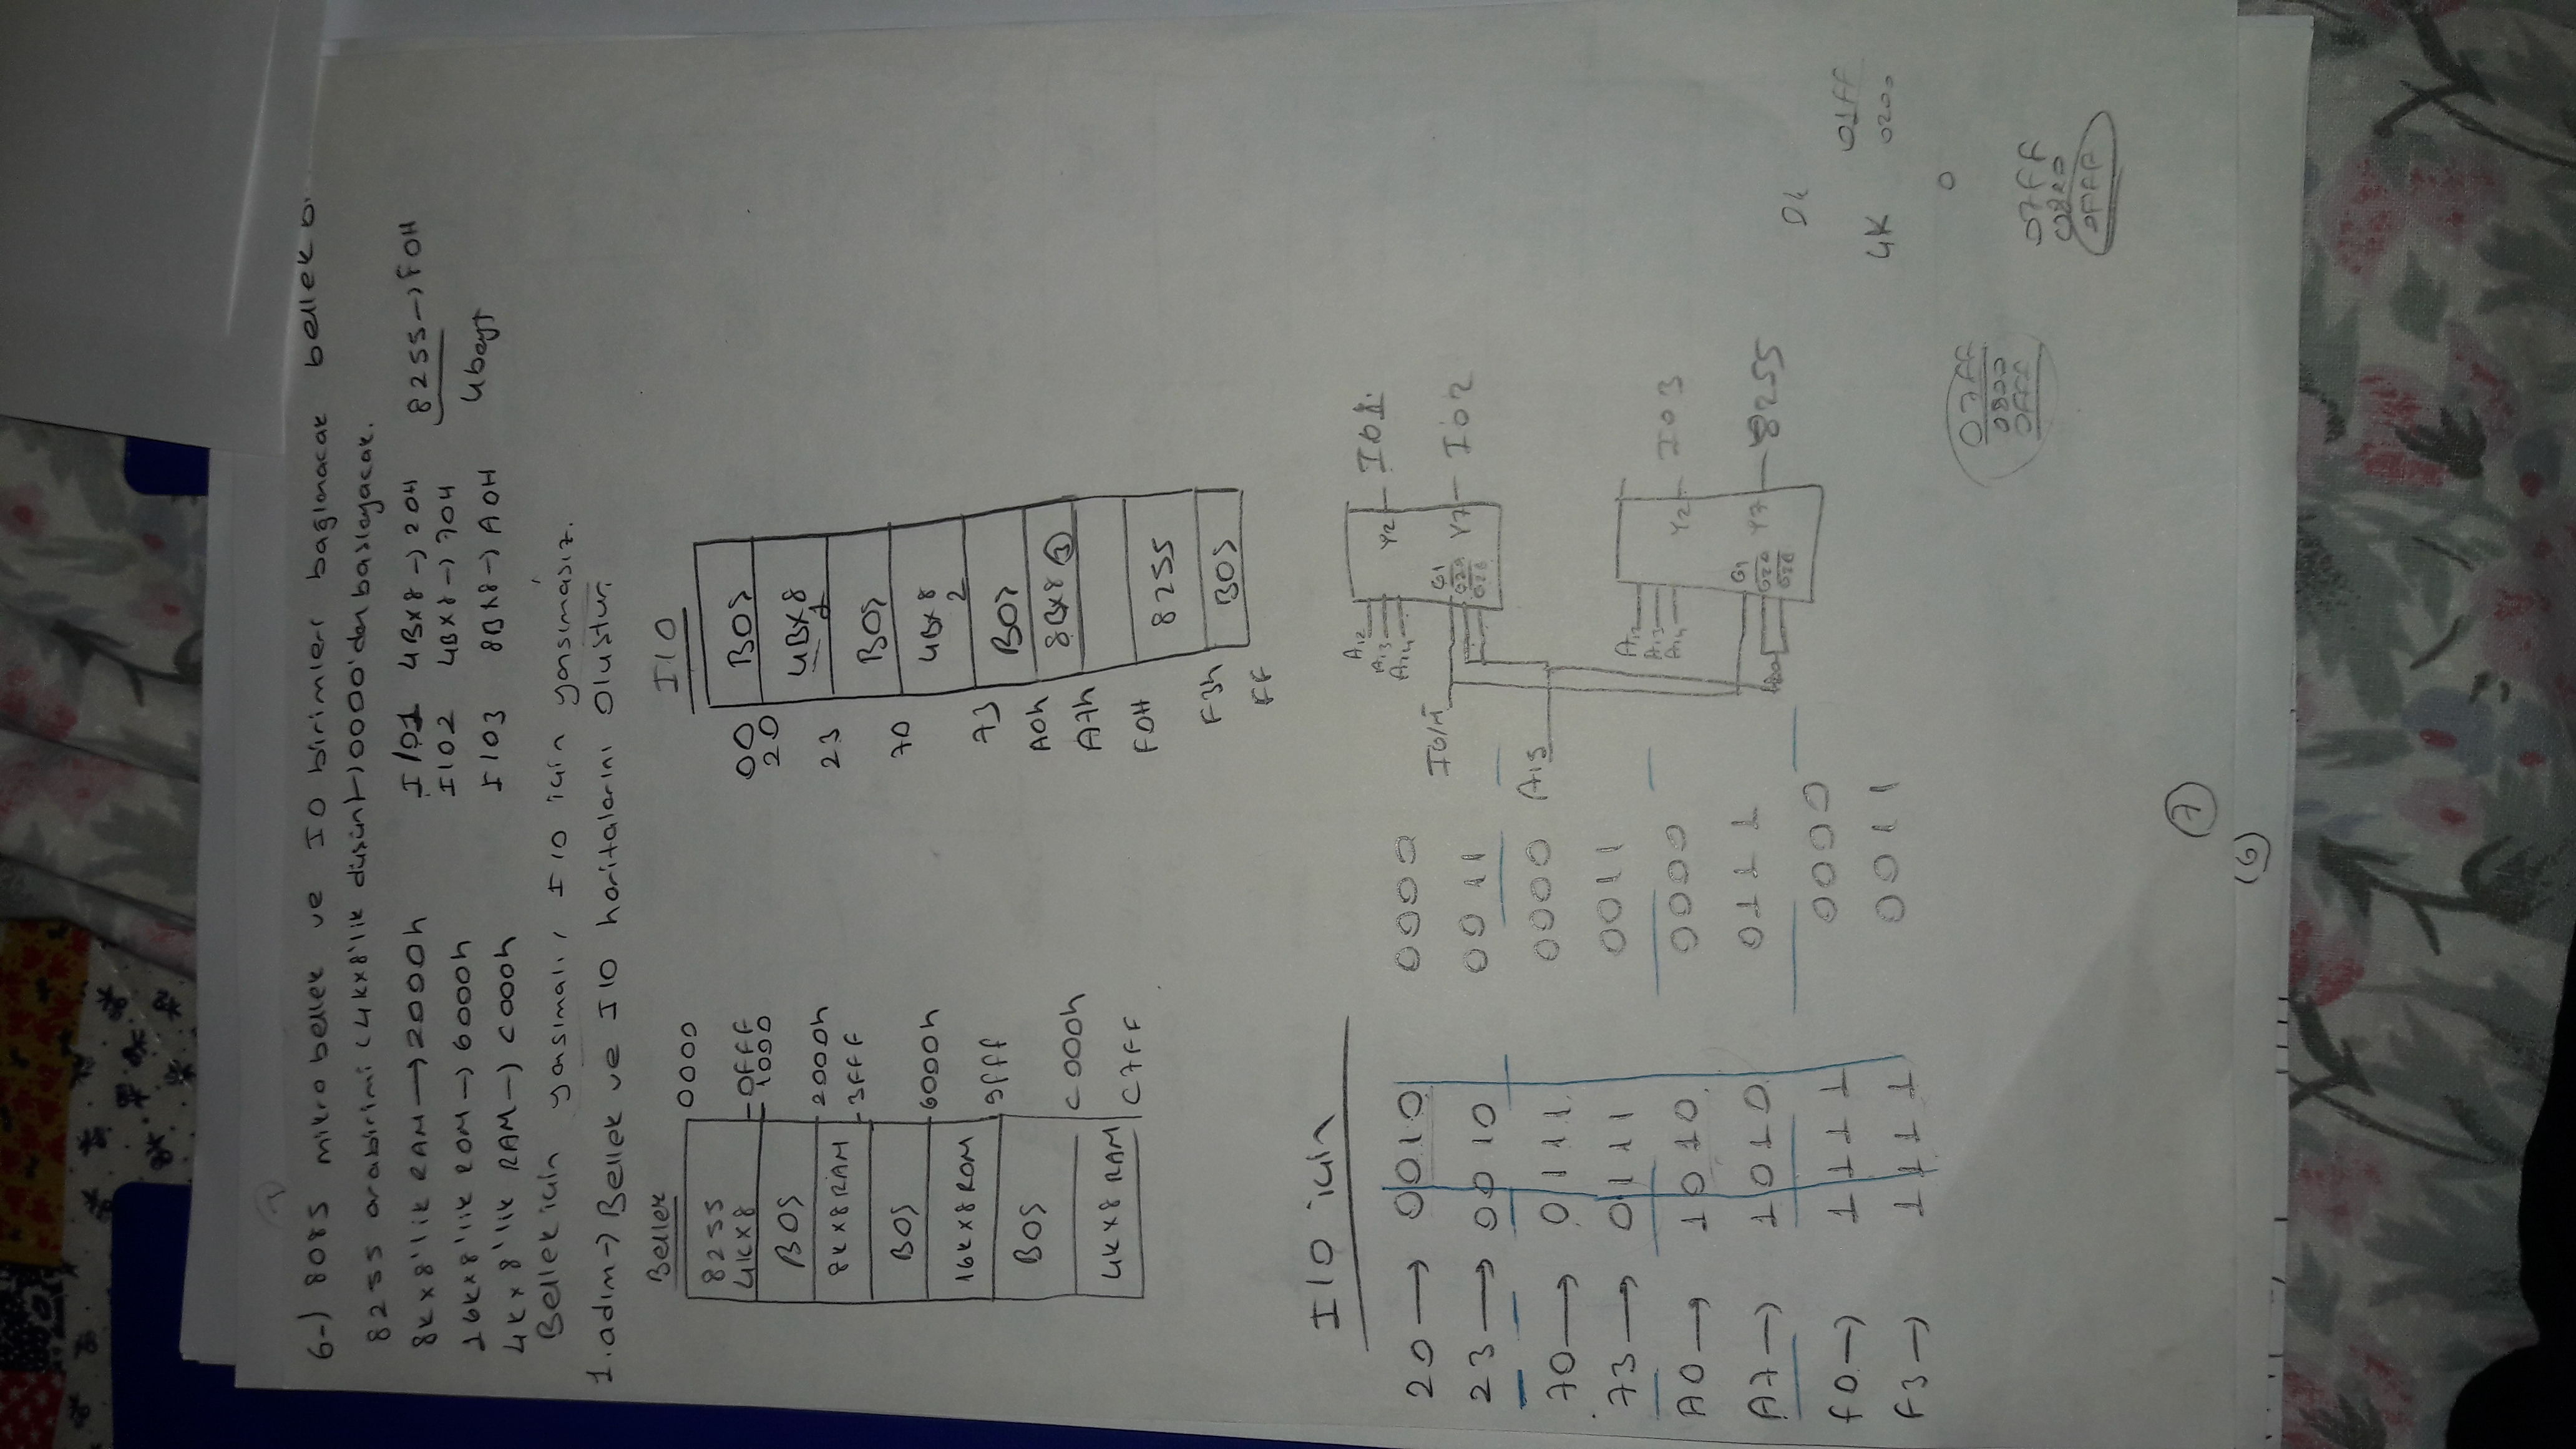 6-) 8085 mikro bellek ve IO birimleri bağlanacak bellek
8255 arabirimi (4kx8'lik düşün) 0000'dan başlayacak.
8Kx8'lik RAM → 2000h
16Kx8'lik ROM → 6000h
4Kx8'lik RAM → C000h
I/O1 4Bx8 → 20H
I/O2 4Bx8 → 70H
I/O3 8Bx8 → A0H
8255 → F0H
4bayt
Bellek için yansımalı, I/O için yansımasız.
1.adım → Bellek ve I/O haritalarını Oluştur.
Bellek
0000
8255
4Kx8
0FFF
1000
BOŞ
2000h
8Kx8 RAM
3FFF
BOŞ
6000h
16Kx8 ROM
9fff
BOŞ
C000h
4Kx8 RAM
C7FF
I/O
00 BOŞ
20
4Bx8
1
23
BOŞ
70
4Bx8
2
73
BOŞ
A0h
8Bx8 3
A7h
F0H
8255
F3h
BOŞ
FF
I/O için
20 → 0010 0000
23 → 0010 0011
70 → 0111 0000
73 → 0111 0011
A0 → 1010 0000
A7 → 1010 0111
f0 → 1111 0000
F3 → 1111 0011
A12
A13
A14
Y2 IO1
IO/M
G1
G2A
G2B
Y7 IO2
A15
A12
A13
A14
Y2 IO3
G1
G2A
G2B
Y7 8255
01FF
4K 0200
0
07FF
0800
0FFF
07FF
0800
0FFF
7
(6)